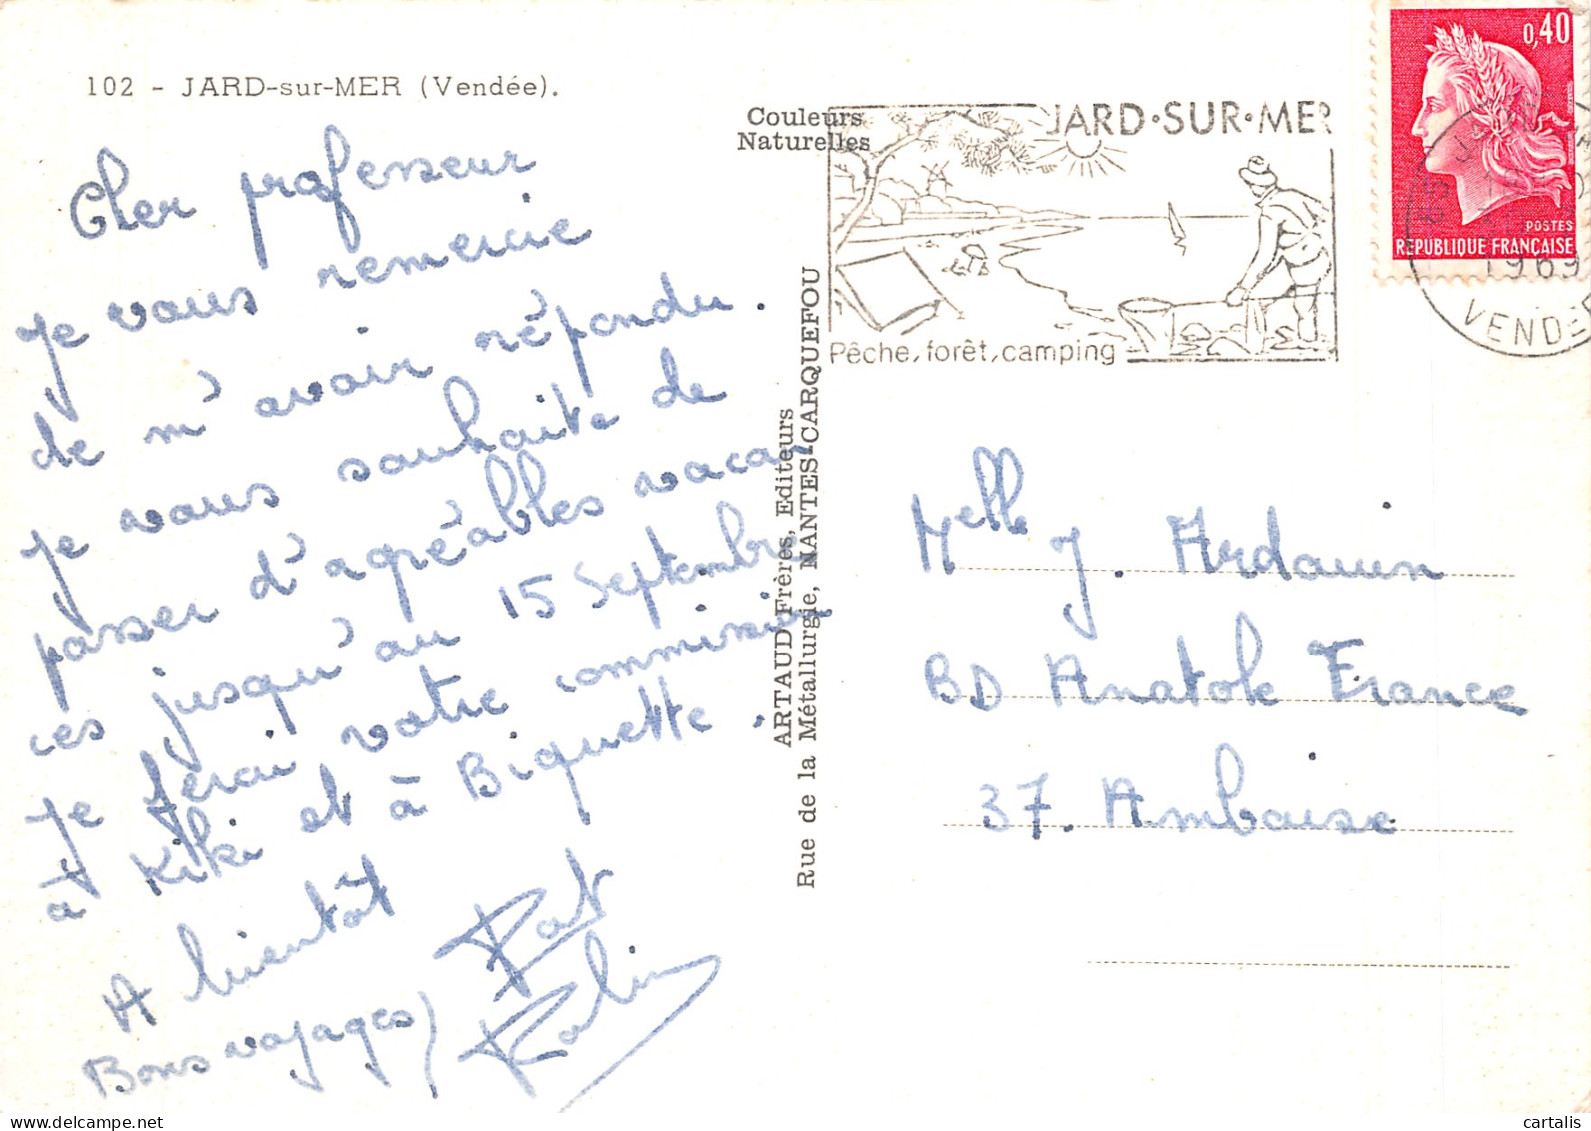 102 - JARD-sur-MER (Vendée).
Cher professeur
Je vous remercie
de m'avoir répondu.
Je vous souhaite de
passer d'agréables vacan
ces jusqu'au 15 Septembre
Je ferai votre commission
à Kiki et à Biquette.
A bientôt
Bons voyages
Pat
Couleurs
Naturelles
ARTAUD Frères, Editeurs
Rue de la Métallurgie, NANTES-CARQUEFOU
JARD·SUR·MER
Pêche, forêt, camping
0,40
POSTES
REPUBLIQUE FRANÇAISE
1969
VENDEE
Melle J. Ardouin
BD Anatole France
37. Amboise
cartalis
delcampe.net